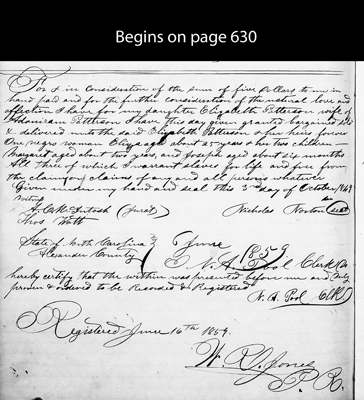 Begins on page 630
For & in consideration of the sum of five dollars to me in
hand paid and for the further consideration of the natural love and
affection I have for my daughter Elizabeth Patterson wife of
Patterson I have this day given granted bargained sold
& delivered unto the said Elizabeth Patterson & her heirs forever
One negro woman Eliza aged about 25 years & her two children
Margaret aged about two years, and Joseph aged about six months
All three of which I warrant slaves for life and free from
the claim or claims of any and all persons whatever
Given under my hand and seal this 3rd day of October 1849
McIntosh (Jurat) Nicholas Norton seal
Thos Watt
State of North Carolina
Alexander County
June 1859
I N. A. Pool Clerk
hereby certify that the within was presented before me and duly
proven & ordered to be Recorded & Registered
N. A. Pool Clk
Registered June 16th 1859.
W. R. D. Jones
P. R.